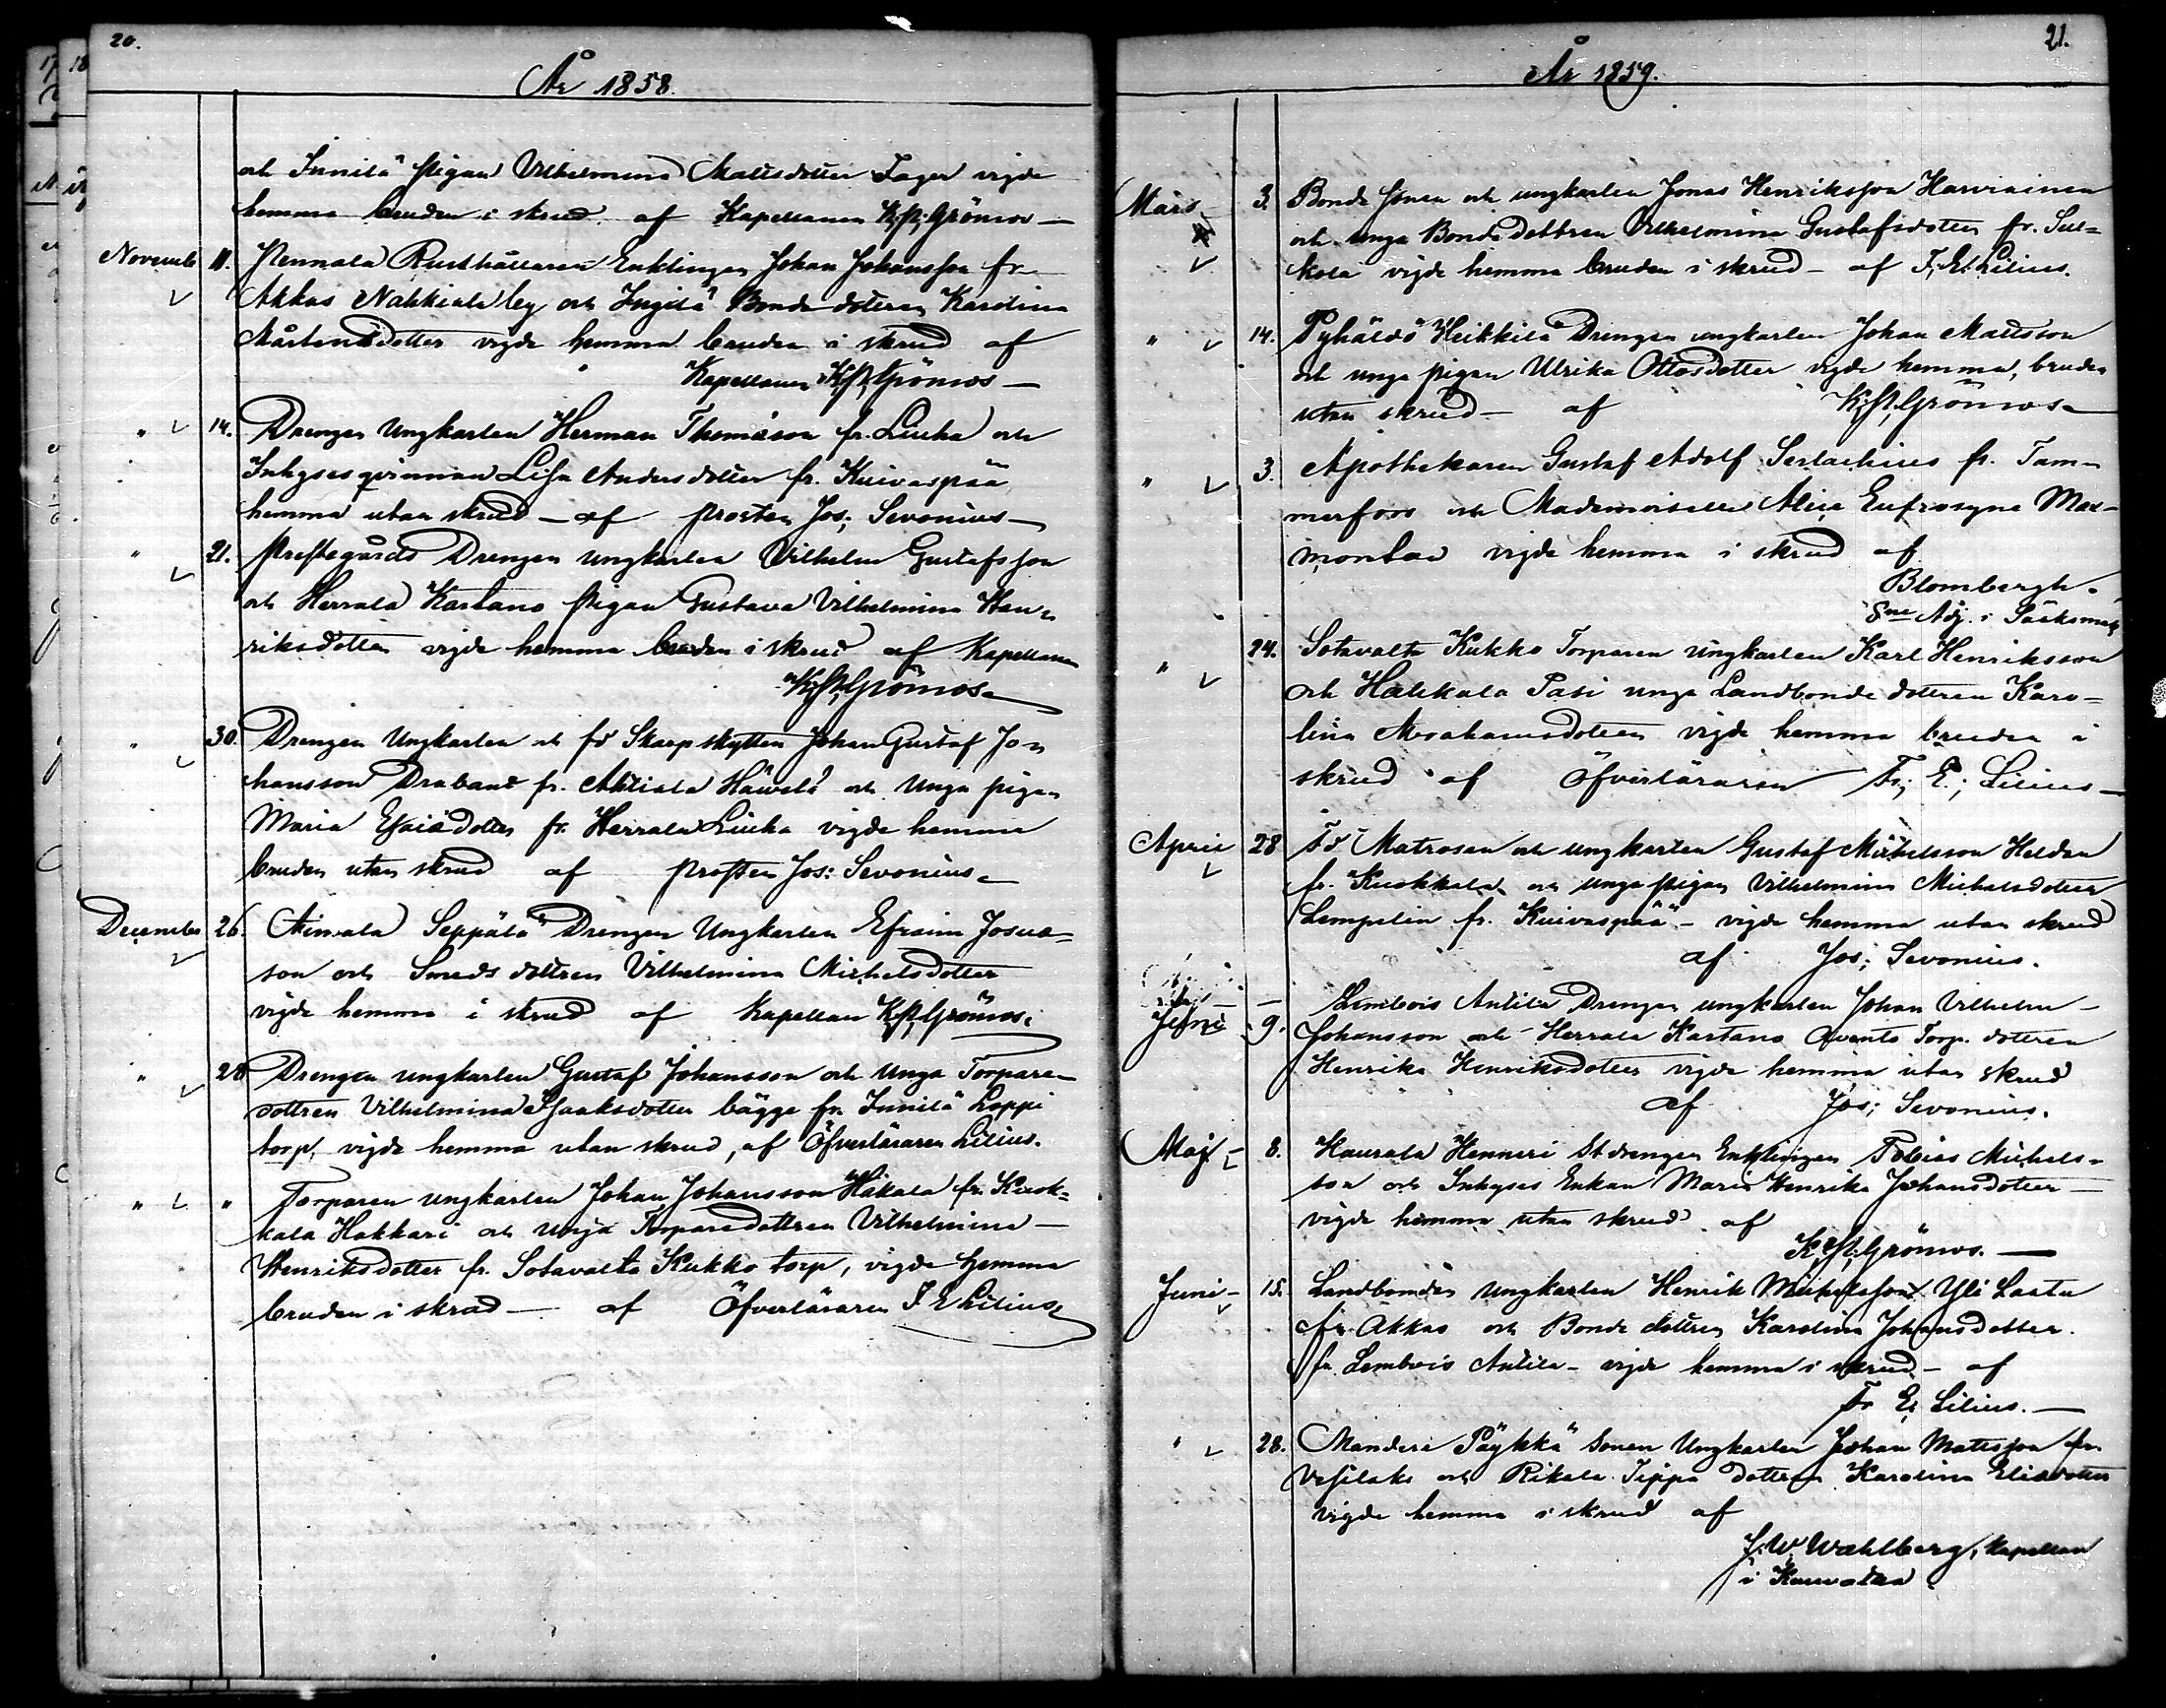 20.
År 1858.
och Innilä pigan Vilhelmina Mattsdotter Fager vigde
hemma bruden i skrud af Kapellanen K. A. Grönros —
Novemb 11. Pennala Rusthållaren Enklingen Johan Johansson fr.
Akkas Nahkiala by och Ingilä Bonde dottren Karolina
Mårtensdotter vigde hemma bruden i skrud af
Kapellanen K. A. Grönros —
" 14. Drengen Ungkarlen Herman Thomasson fr. Liuha och
Inhyses qvinnan Lisa Andersdotter fr. Kuivaspää
hemma utan skrud — af prosten Jos; Sevonius —
" 21. Prestegårds Drengen ungkarlen Vilhelm Gustafsson
och Herrala Kartano pigan Gustava Vilhelmina Hen-
riksdotter vigde hemma bruden i skrud af Kapellanen
K. A. Grönros
" 30. Drengen Ungkarlen och fd Skarpskytten Johan Gustaf Jo-
hansson Draband fr. Ahtiala och Unga pigan
Maria Esaiedotter fr. Herrala Liuha vigde hemma
bruden utan skrud af prosten Jos: Sevonius
December 26. Seppälä Drengen Ungkarlen Efraim Josua-
son och Smeds dottren Vilhelmina Michelsdotter
vigde hemma i skrud af Kapellan K. A. Grönros.
" 28 Drengen ungkarlen Gustaf Johansson och Unga Torpare-
dottren Vilhelmina Isaaksdotter bägge fr. Innilä Loppi
torp, vigde hemma utan skrud, af Öfverläraren Lilius.
" " Torparen ungkarlen Johan Johansson Hakala fr. Kuok-
kala Hakkari och Unga Torparedottren Vilhelmina —
Henriksdotter fr. Sotavalta Kukko torp, vigde hemma
bruden i skrud — af Öfverläraren F E Lilius
21.
År 1859.
Mars 3. Bonde sonen och ungkarlen Jonas Henriksson Harviainen
och unga Bonde dottren Vilhelmina Gustafsdotter fr. Sul-
kola vigde hemma bruden i skrud — af F. E. Lilius.
" 14. Pyhäldö Heikkilä Drengen ungkarlen Johan Mattsson
och unga pigan Ulrika Ottosdotter vigde hemma, bruden
utan skrud — af K. A. Grönros
" 3. Apothekaren Gustaf Adolf Serlachius fr. Tam-
merfors och Mademoiselle Alice Eufrosyne Max-
montan vigde hemma i skrud af
Blombergh.
Adj. i Sääksmäki
" 24. Sotavalta Kukko Torparen Ungkarlen Karl Henriksson
och Hakkala Pasi unga Landbonde dottren Karo-
lina Abrahamsdotter vigde hemma bruden i
skrud af Öfverläraren Fr; E.; Lilius —
April 28 Fd Matrosen och ungkarlen Gustaf Michelsson Heldan
fr. Kuokkala och unga pigan Vilhelmina Michelsdotter
Lempelin fr. Kuivaspää — vigde hemma utan skrud
af Jos; Sevonius.
Juni 9. Lembois Antila Drengen ungkarlen Johan Vilhelm —
Johansson och Herrala Kartano Torp. dottren
Henrika Henriksdotter vigde hemma utan skrud
af Jos; Sevonius.
Maj — 8. Haurala Henneri St drengen Enklingen Tobias Michels-
son och Inhyses Enkan Maria Henrika Johansdotter —
vigde hemma utan skrud af
K. A. Grönros. —
Juni — 15. Landbonden Ungkarlen Henrik Michelsson Yli Laatu
fr. Akkas och Bonde dottren Karolina Johansdotter
fr. Lembois Antila — vigde hemma i skrud — af
Fr E; Lilius. —
" 28. Mandere Päykkä Sonen Ungkarlen Johan Mattsson fr.
Vesilaks och Rikala Seppä dottren Karolina Eliedotter
vigde hemma i skrud af
J. W. Wahlberg, Kapellan
i Kuruvatka